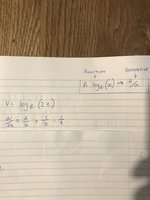 FUNCTION DERIVATIVE
A loge (x) → A/x
V = loge (2t)
dV/dx = A/x = 1/x = 1/t